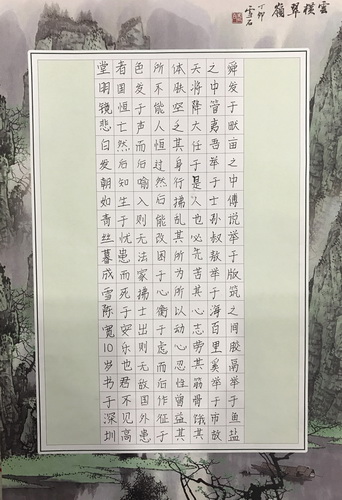 雲橫翠嶺
丁卯
雪石
舜发于畎亩之中傅说举于版筑之间胶鬲举于鱼盐
之中管夷吾举于士孙叔敖举于海百里奚举于市故
天将降大任于是人也必先苦其心志劳其筋骨饿其
体肤空乏其身行拂乱其所为所以动心忍性曾益其
所不能人恒过然后能改困于心衡于虑而后作征于
色发于声而后喻入则无法家拂士出则无敌国外患
者国恒亡然后知生于忧患而死于安乐也君不见高
堂明镜悲白发朝如青丝暮成雪陈宽10岁书于深圳